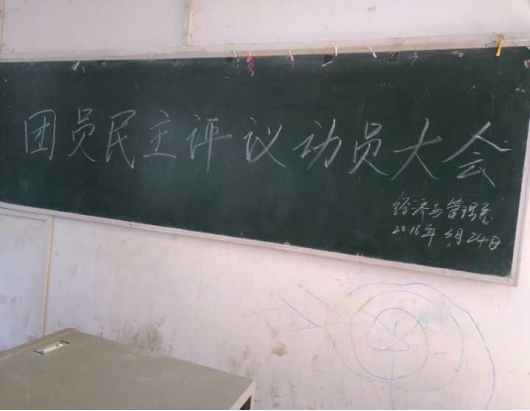 团员民主评议动员大会
经济与管理系
2016年3月24日